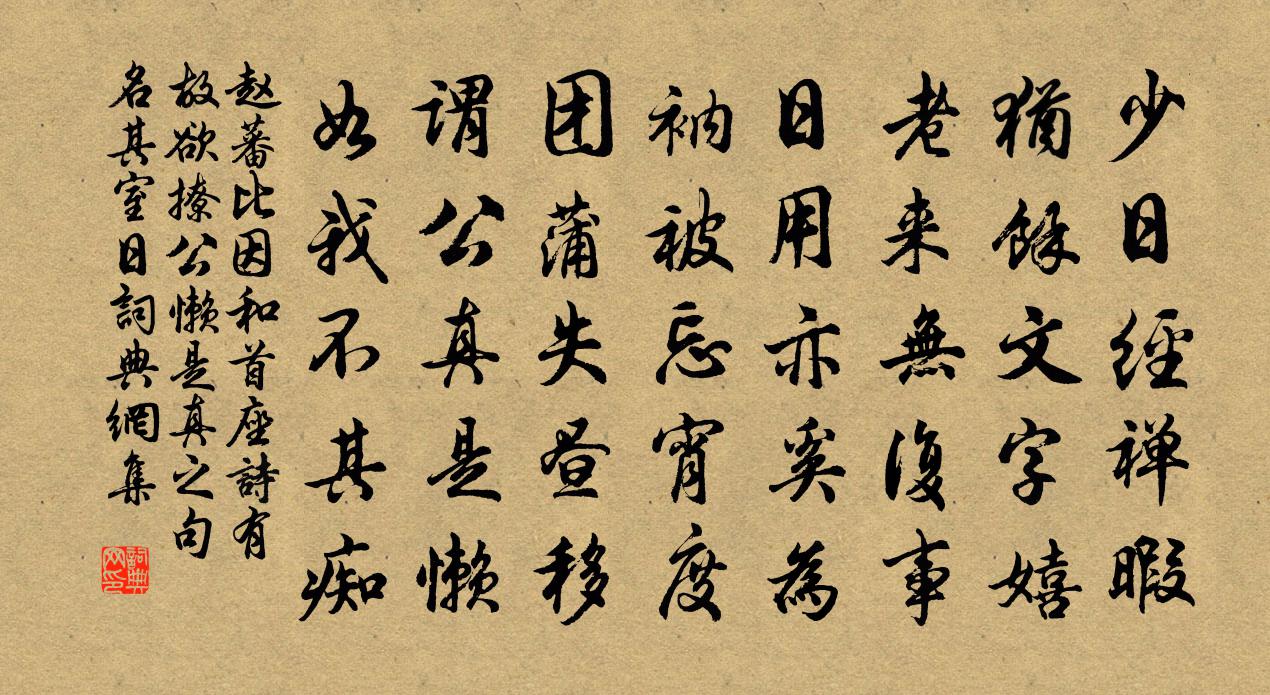 少日經禅暇
猶餘文字嬉
老来無復事
日用亦奚為
衲被忘宵度
团蒲失昼移
謂公真是懒
如我不其痴
赵蕃比因和首座詩有
故欲撩公懒是真之句
名其室日詞典網集
詞典网印